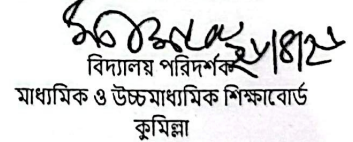 ২৮/৪/২৮
বিদ্যালয় পরিদর্শক
মাধ্যমিক ও উচ্চমাধ্যমিক শিক্ষাবোর্ড
কুমিল্লা